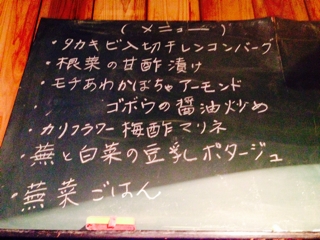 (メニュー)
・タカキビ入切干レンコンバーグ
・根菜の甘酢漬け
・モチあわかぼちゃアーモンド
・ゴボウの醤油炒め
・カリフラワー梅酢マリネ
・蕪と白菜の豆乳ポタージュ
・蕪菜ごはん